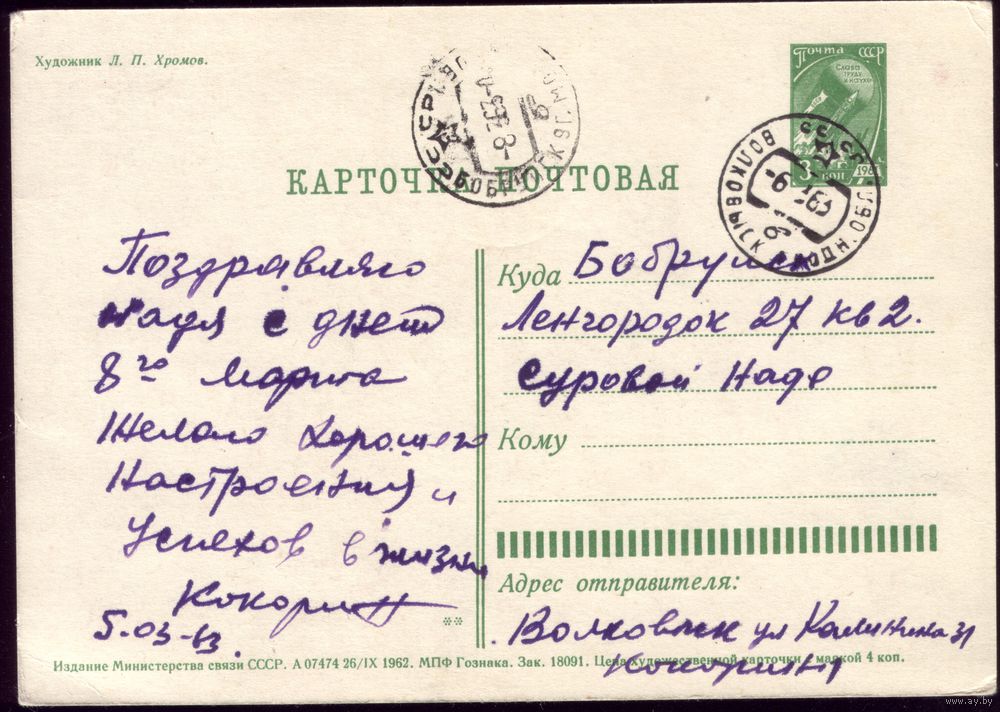 Художник Л. П. Хромов.
Почта СССР
Слава труду и науке
3 коп 1961
КАРТОЧКА ПОЧТОВАЯ
ВОЛКОВЫСК
Поздравляю
Надя с днем
8го Марта
Желаю хорошего
Настроения и
Успехов в жизни
Кокорин
5.03-63.
Куда Бобруйск
Ленгородок 27 кв 2.
Суровой Наде
Кому
Адрес отправителя:
Волковыск ул Калинина 31
**
Издание Министерства связи СССР. А 07474 26/IX 1962. МПФ Гознака. Зак. 18091. Цена художественной карточки с маркой 4 коп.
www.ay.by